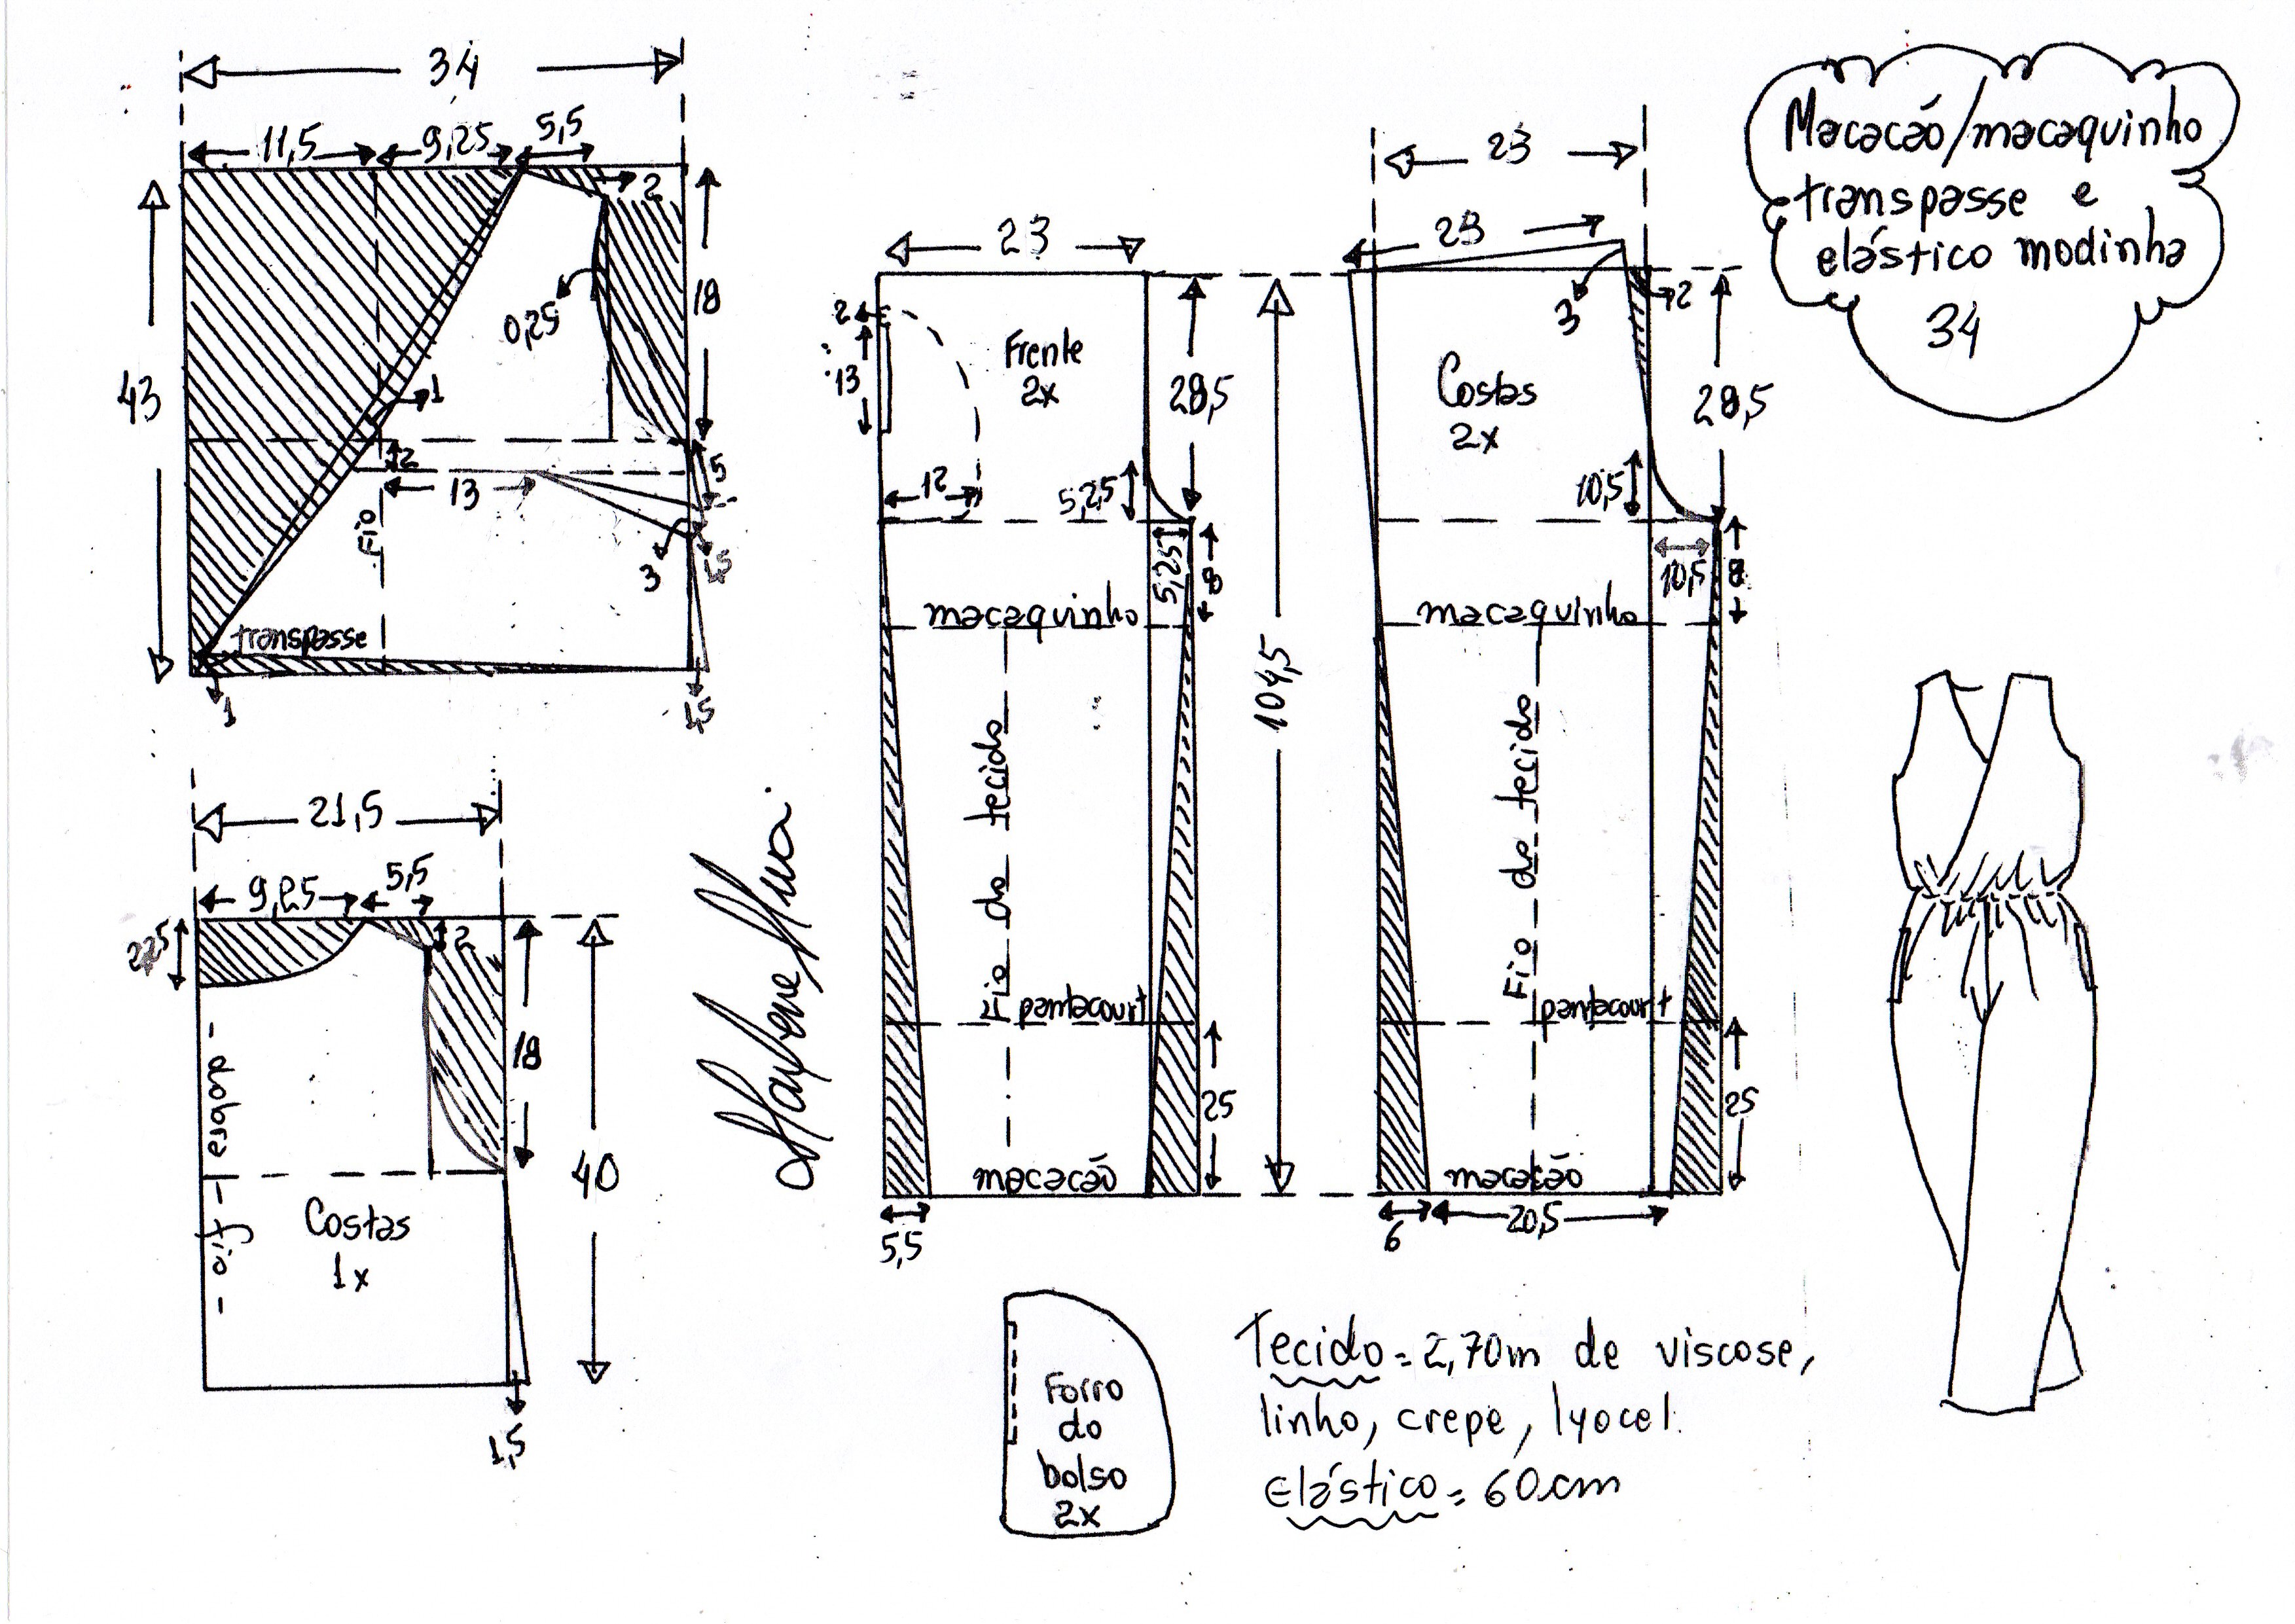 34
11,5
9,25
5,5
2
43
18
0,25
1
2
5
13
Fio
3
1,5
transpasse
1
1,5
21,5
9,25
5,5
2,25
2
18
40
- dobra - fio -
Costas
1x
1,5
Marlene Mukai
23
2
13
Frente
2x
28,5
12
5,25
5,25
8
macaquinho
Fio do tecido
pantacourt
25
macacão
5,5
104,5
23
23
3
2
Costas
2x
28,5
10,5
10,5
8
macaquinho
Fio do tecido
pantacourt
25
macacão
6
20,5
Macacão/macaquinho
transpasse e
elástico modinha
34
Forro
do
bolso
2x
Tecido = 2,70m de viscose,
linho, crepe, lyocel.
Elástico = 60cm